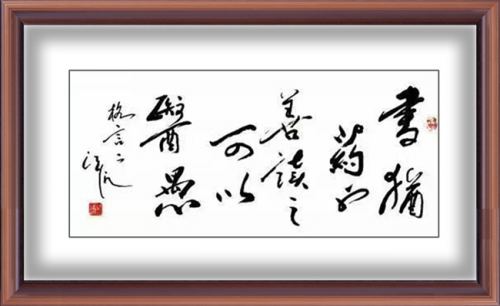 書猶
药也
善读之
可以
醫愚
格言